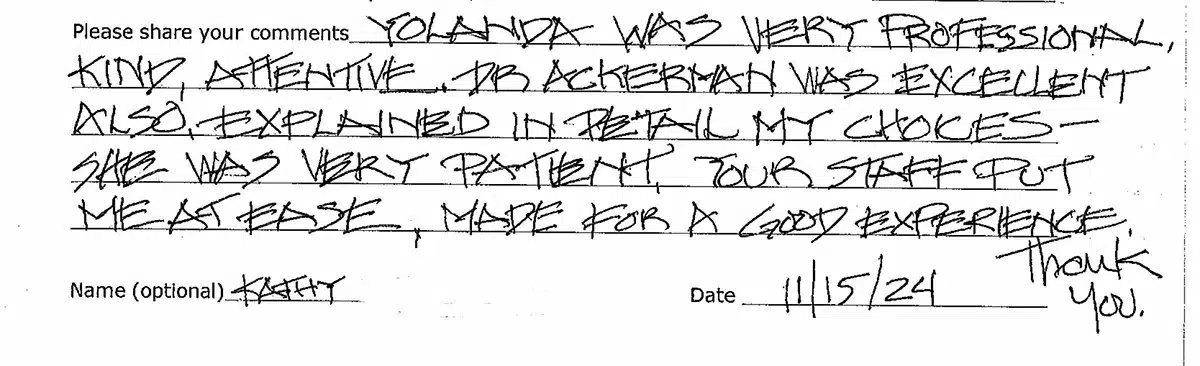 Please share your comments YOLANDA WAS VERY PROFESSIONAL,
KIND, ATTENTIVE. DR ACKERMAN WAS EXCELLENT
ALSO. EXPLAINED IN DETAIL MY CHOICES-
SHE WAS VERY PATIENT. YOUR STAFF PUT
ME AT EASE, MADE FOR A GOOD EXPERIENCE.
Thank
Name (optional) KATHY Date 11/15/24 You.